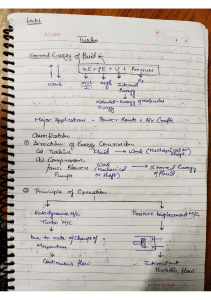 Lec 1
Turbo
Stored Energy of fluid :-
KE + PE + U + Pressure
Work
Internal
Molecular Energy of Molecules
Energy
Major Applications - Power Plants & Air Crafts
Classification
① Direction of Energy Conversion
(a) Turbine Fluid → Work (Mechanical or Shaft)
(b) Compressors Work → Stored Energy
Fans Blowers (Mechanical of fluid
Pumps or Shaft)
② Principle of Operation
Rotodynamic M/C Positive Displacement M/C
Turbo M/C
Due to rate of change of
Momentum
Continuous flow Intermittent
flow